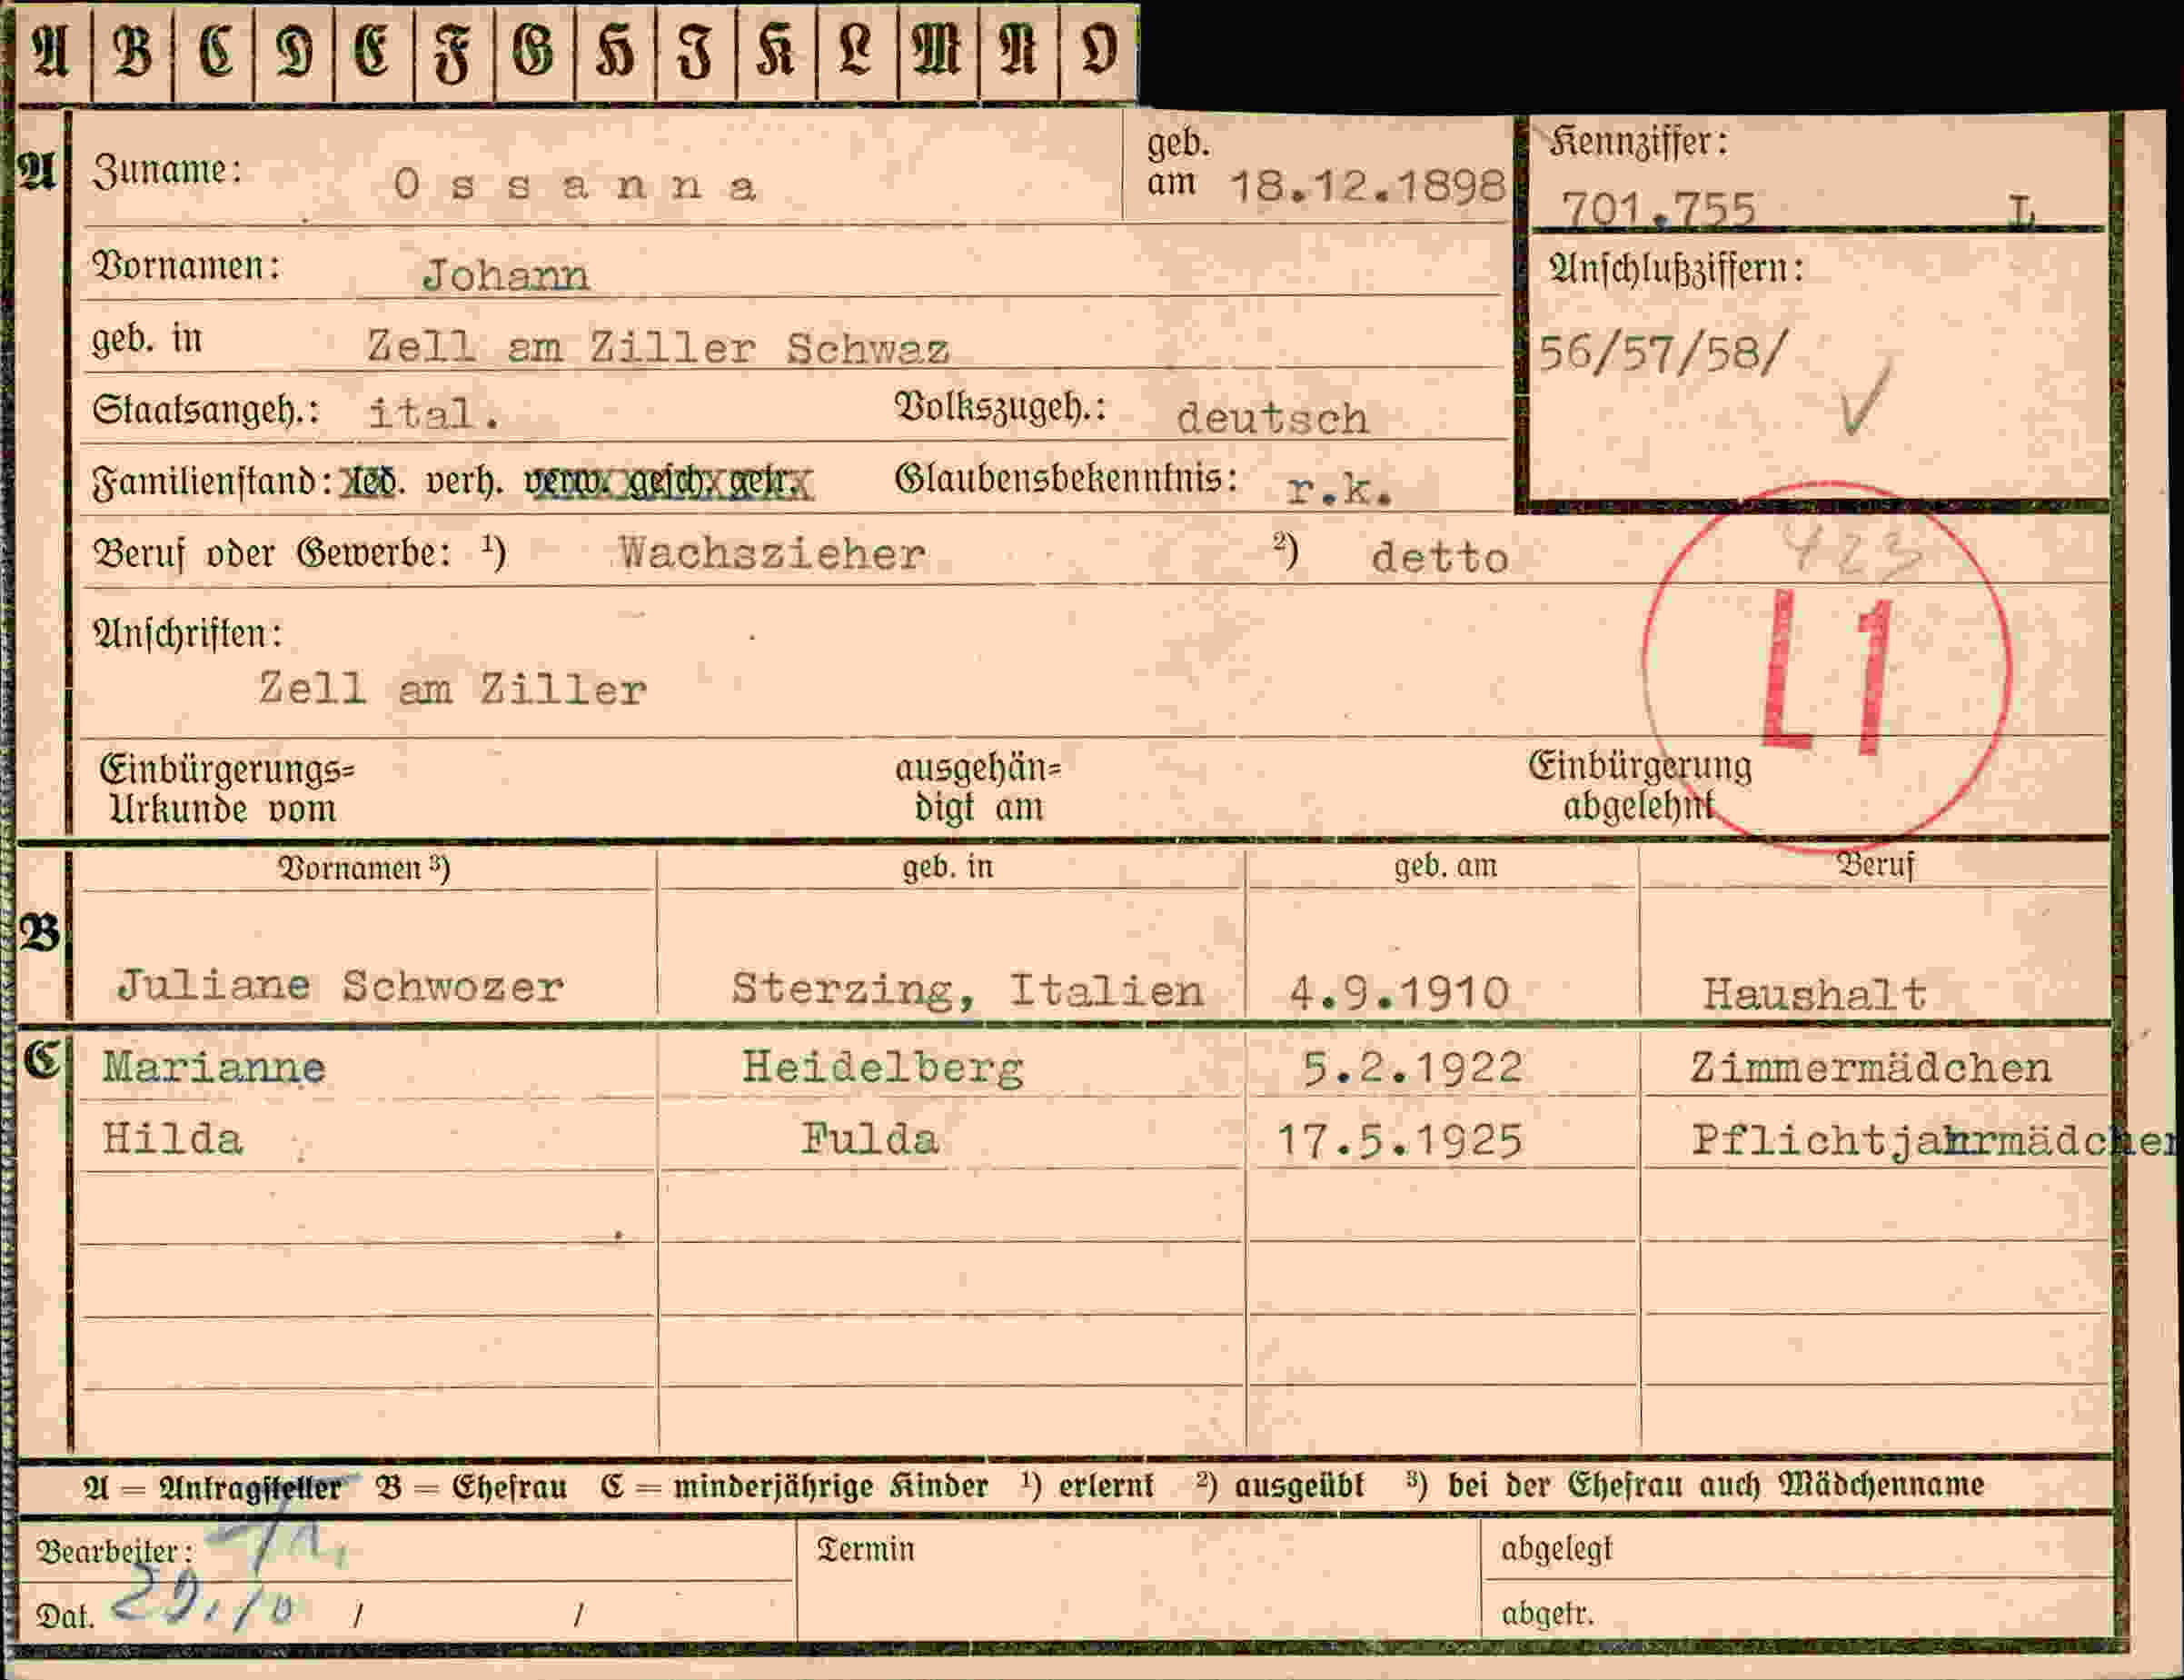 A B C D E F G H J K L M N O
A Zuname: Ossanna geb. am 18.12.1898 Kennziffer: 701.755 L
Vornamen: Johann Anschlußziffern:
geb. in Zell am Ziller Schwaz 56/57/58/ ✓
Staatsangeh.: ital. Volkszugeh.: deutsch
Familienstand: led. verh. verw. gesch. getr. Glaubensbekenntnis: r.k.
423
Beruf oder Gewerbe: ¹) Wachszieher ²) detto
L1
Anschriften:
Zell am Ziller
Einbürgerungs= ausgehän= Einbürgerung
Urkunde vom digt am abgelehnt
Vornamen ³) geb. in geb. am Beruf
B
Juliane Schwozer Sterzing, Italien 4.9.1910 Haushalt
C Marianne Heidelberg 5.2.1922 Zimmermädchen
Hilda Fulda 17.5.1925 Pflichtjahrmädchen
A = Antragsteller B = Ehefrau C = minderjährige Kinder ¹) erlernt ²) ausgeübt ³) bei der Ehefrau auch Mädchenname
Bearbeiter: Termin abgelegt
Dat. 29./10 / / abgetr.